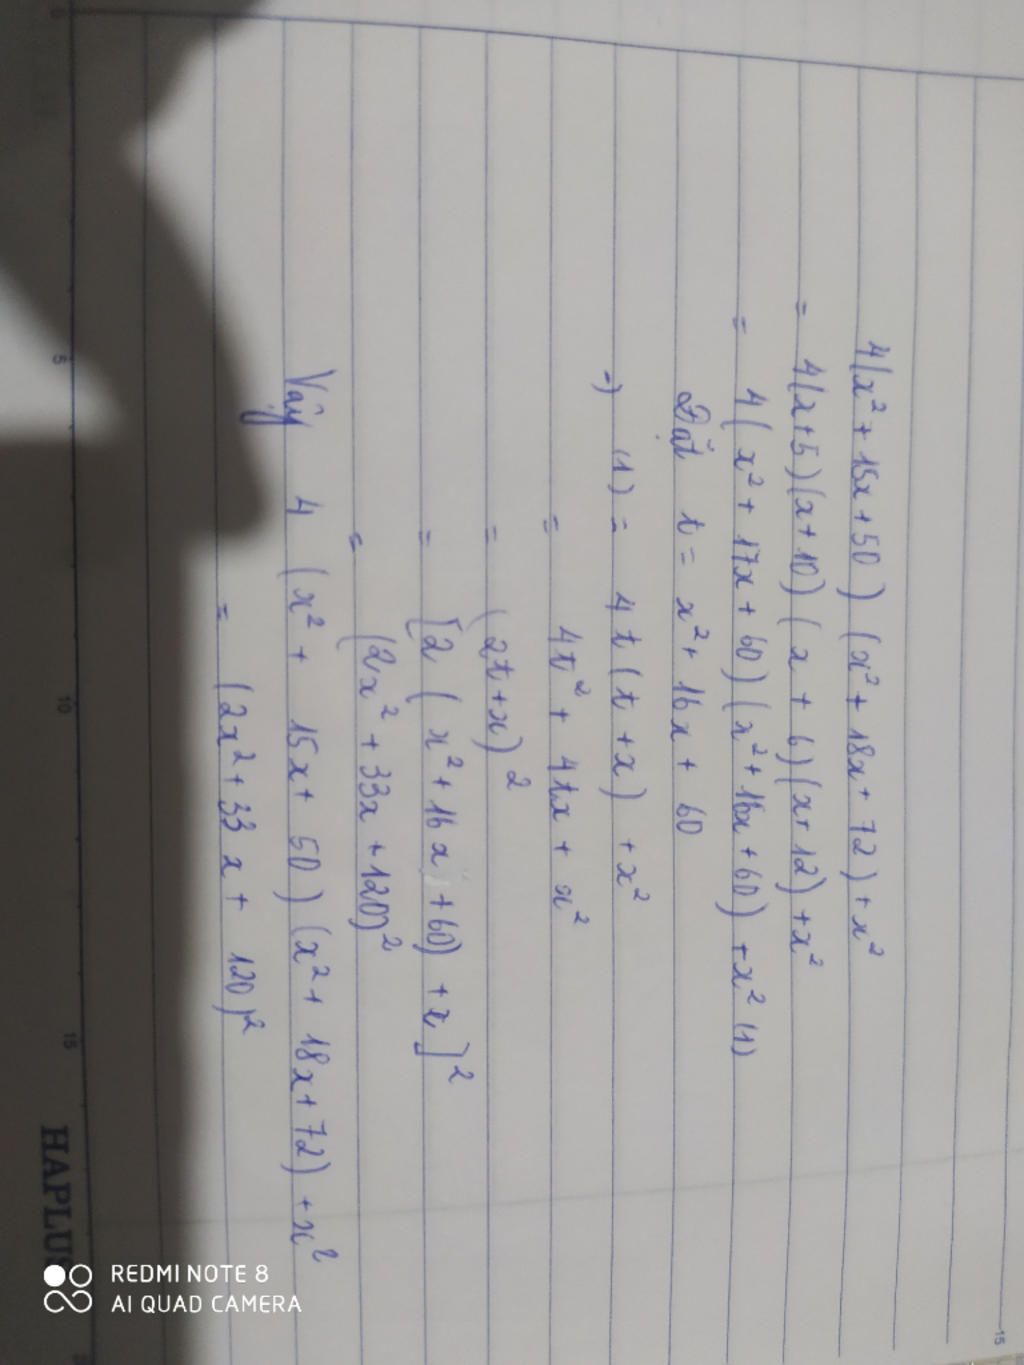 4(x² + 15x + 50) (x² + 18x + 72) + x²
= 4(x+5)(x+10) (x + 6)(x+12) + x²
= 4(x² + 17x + 60) (x² + 16x + 60) + x² (1)
Đặt t = x² + 16x + 60
=) (1) = 4t (t + x) + x²
= 4t² + 4tx + x²
= (2t+x)²
= [2 (x² + 16x + 60) + x]²
= (2x² + 33x + 120)²
Vậy 4 (x² + 15x + 50) (x² + 18x + 72) + x²
= (2x² + 33x + 120)²
5
10
15
15
HAPLUS
REDMI NOTE 8
AI QUAD CAMERA